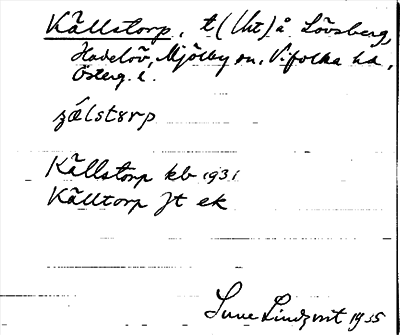 Källstorp, t (Uht) å Lövsberg,
Hadelöv, Mjölby sn, Vifolka hd,
Österg. l.
Källstorp kb 1931
Källtorp Jt ek
Sune Lindqvist 1935